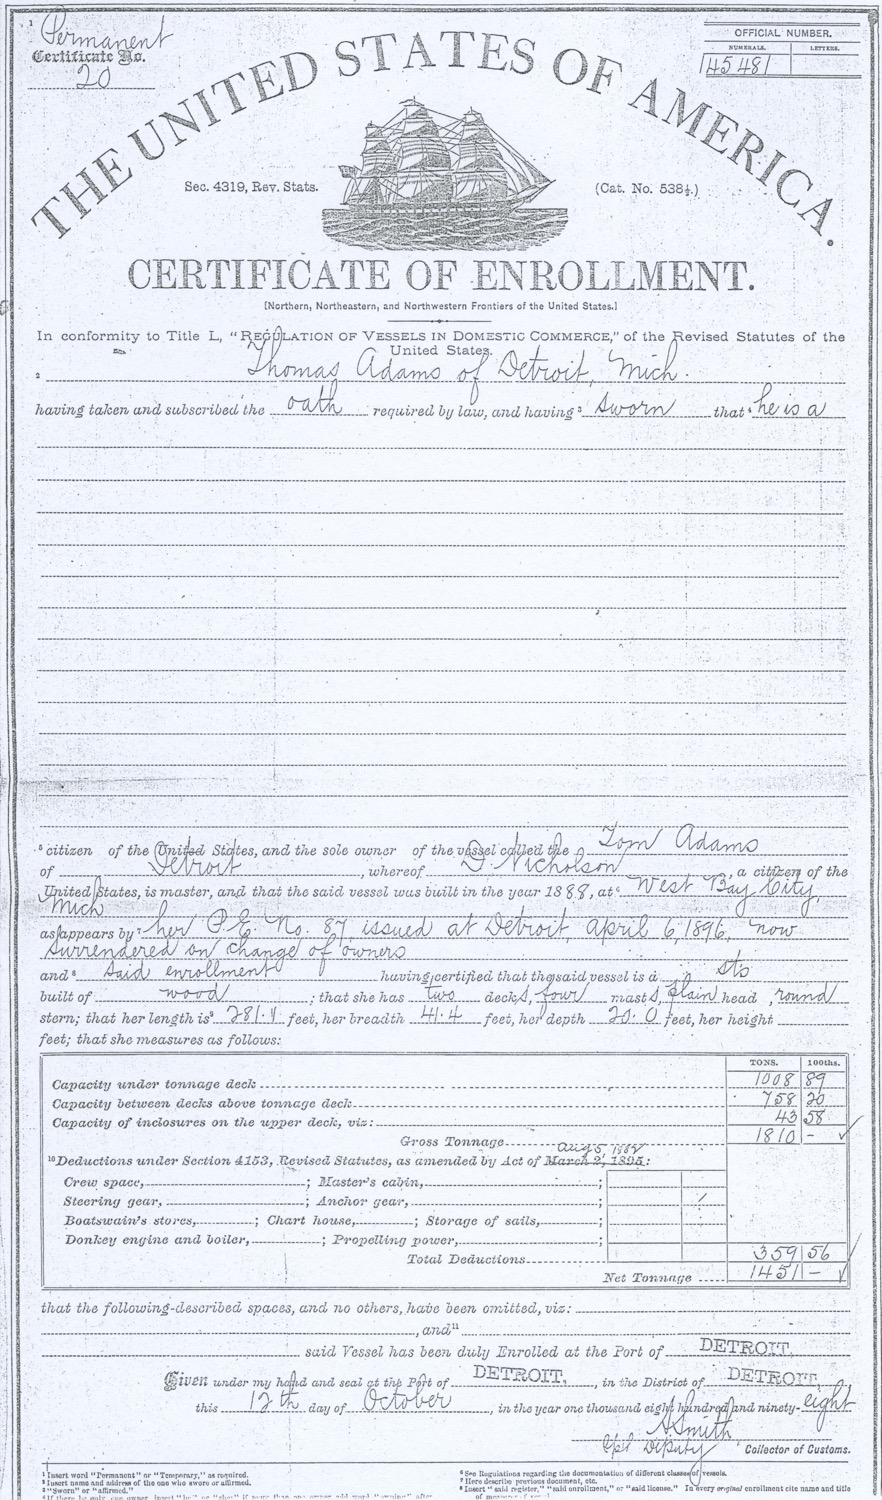 1 Permanent
Certificate No.
20
OFFICIAL NUMBER.
NUMERALS. LETTERS.
145481
THE UNITED STATES OF AMERICA.
Sec. 4319, Rev. Stats. (Cat. No. 538½.)
CERTIFICATE OF ENROLLMENT.
[Northern, Northeastern, and Northwestern Frontiers of the United States.]
In conformity to Title L, "REGULATION OF VESSELS IN DOMESTIC COMMERCE," of the Revised Statutes of the
United States.
2 Thomas Adams of Detroit, Mich.
having taken and subscribed the oath required by law, and having 3 sworn that 4 he is a
5 citizen of the United States, and the sole owner of the vessel called the Tom Adams
of Detroit, whereof D. Nicholson, a citizen of the
United States, is master, and that the said vessel was built in the year 1888, at 6 West Bay City,
Mich
as appears by 7 her P.E. No. 87, issued at Detroit, April 6, 1896, now
surrendered on change of owners
and 8 said enrollment having certified that the said vessel is a sts
built of wood; that she has two decks, four masts, plain head, round
stern; that her length is 9 281.1 feet, her breadth 41.4 feet, her depth 20.0 feet, her height
feet; that she measures as follows:
TONS. 100ths.
Capacity under tonnage deck 1008 89
Capacity between decks above tonnage deck 758 20
Capacity of inclosures on the upper deck, viz: 43 58
Gross Tonnage 1810 –
Aug 5, 1882
10 Deductions under Section 4153, Revised Statutes, as amended by Act of March 2, 1895:
Crew space, ; Master's cabin, ;
Steering gear, ; Anchor gear, ;
Boatswain's stores, ; Chart house, ; Storage of sails, ;
Donkey engine and boiler, ; Propelling power, ;
Total Deductions 359 56
Net Tonnage 1451 –
that the following-described spaces, and no others, have been omitted, viz:
, and 11
said Vessel has been duly Enrolled at the Port of DETROIT.
Given under my hand and seal at the Port of DETROIT., in the District of DETROIT.
this 12th day of October, in the year one thousand eight hundred and ninety-eight
Smith
Spl Deputy Collector of Customs.
1 Insert word "Permanent" or "Temporary," as required.
2 Insert name and address of the one who swore or affirmed.
3 "Sworn" or "affirmed."
6 See Regulations regarding the documentation of different classes of vessels.
7 Here describe previous document, etc.
8 Insert "said register," "said enrollment," or "said license." In every original enrollment cite name and title